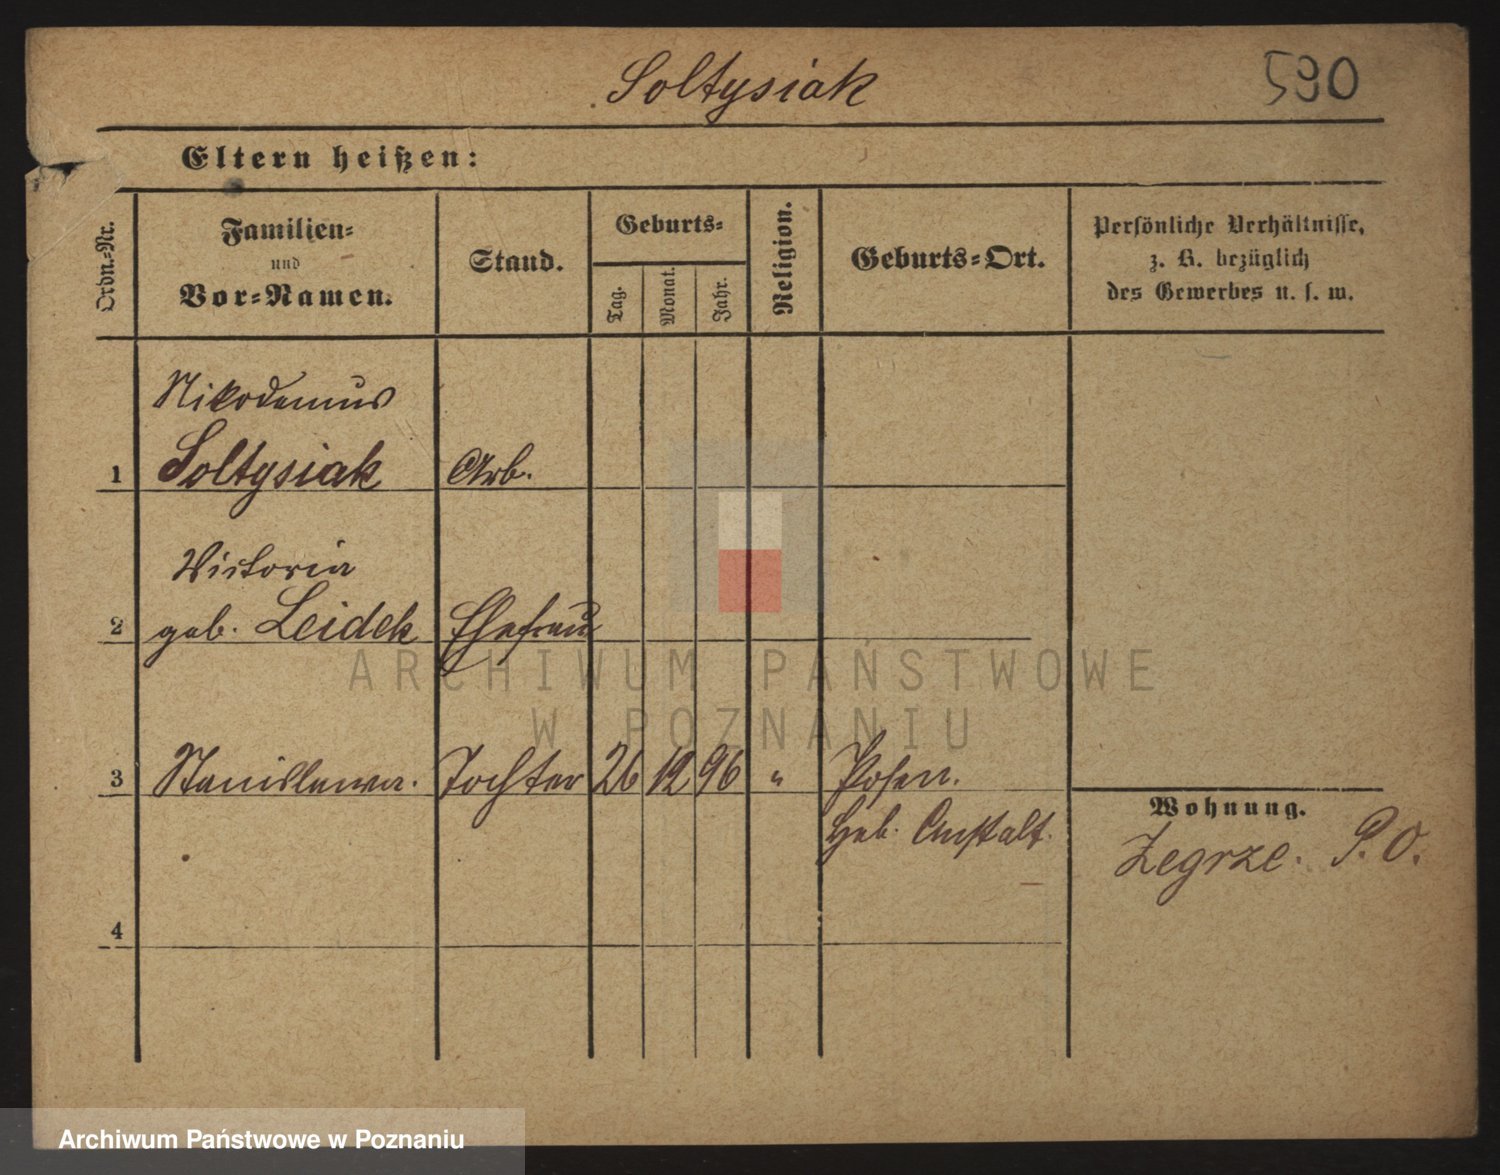 Soltysiak
590
Eltern heißen:
Ordn.-Nr.
Familien-
und
Vor-Namen.
Stand.
Geburts-
Tag.
Monat.
Jahr.
Religion.
Geburts-Ort.
Persönliche Verhältnisse,
z. B. bezüglich
des Gewerbes u. s. w.
Nikodemus
1 Soltysiak Arb.
Victoria
2 geb. Leidek Ehefrau
ARCHIWUM PAŃSTWOWE
W POZNANIU
3 Stanislawa. Tochter 26 12 96 " Posen.
Heb. Anstalt.
Wohnung.
Zegrze. P. O.
4
Archiwum Państwowe w Poznaniu